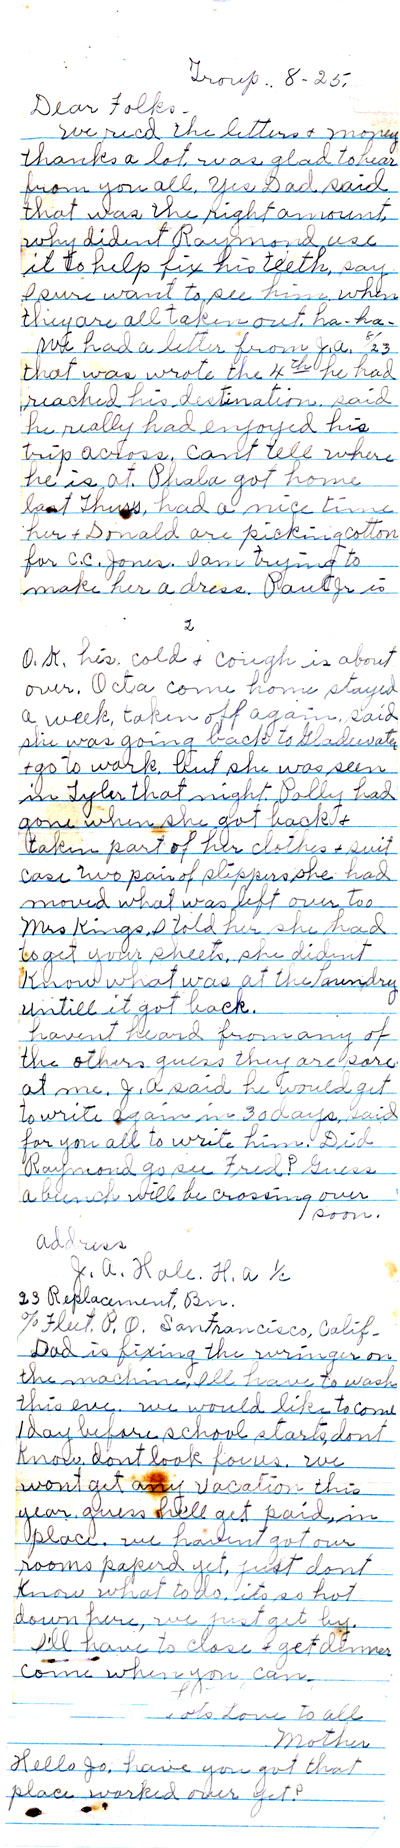 Troup. 8-25.
Dear Folks-
We recd the letters & money
thanks a lot, was glad to hear
from you all. Yes Dad said
that was the right amount,
why dident Raymond use
it to help fix his teeth, say
I sure want to see him when
they are all taken out. ha-ha-
We had a letter from J.A. 8/23
that was wrote the 4th he had
reached his destination. said
he really had enjoyed his
trip across. Cant tell where
he is at. Phala got home
last Thurs, had a nice time
her & Donald are picking cotton
for C.C. Jones. I am trying to
make her a dress. Paul Jr is
2
O.K. his cold & cough is about
over. Octa come home stayed
a week, taken off again, said
she was going back to Gladewater
& go to work, but she was seen
in Tyler that night Polly had
gone when she got back &
taken part of her clothes & suit
case two pair of slippers, she had
moved what was left over too
Mrs Kings, I told her she had
to get your sheets, she dident
Know what was at the laundry
untill it got back.
havent heard from any of
the others guess they are sore
at me. J.A said he would get
to write again in 30 days, said
for you all to write him. Did
Raymond go see Fred? Guess
a bunch will be crossing over
soon.
address
J. A. Hale. H. A 1/c
23 Replacement, Bn.
c/o Fleet. P. O. San Francisco, Calif-
Dad is fixing the wringer on
the machine, Ill have to wash
this eve. we would like to come
1 day before school starts, dont
Know, dont look for us. we
wont get any vacation this
year, guess he'll get paid, in
place. we havent got our
rooms paperd yet, just dont
Know what to do, its so hot
down here, we just get by.
I'll have to close & get dinner
come when you can-
Lots Love to all
Mother
Hello Jo, have you got that
place worked over yet?